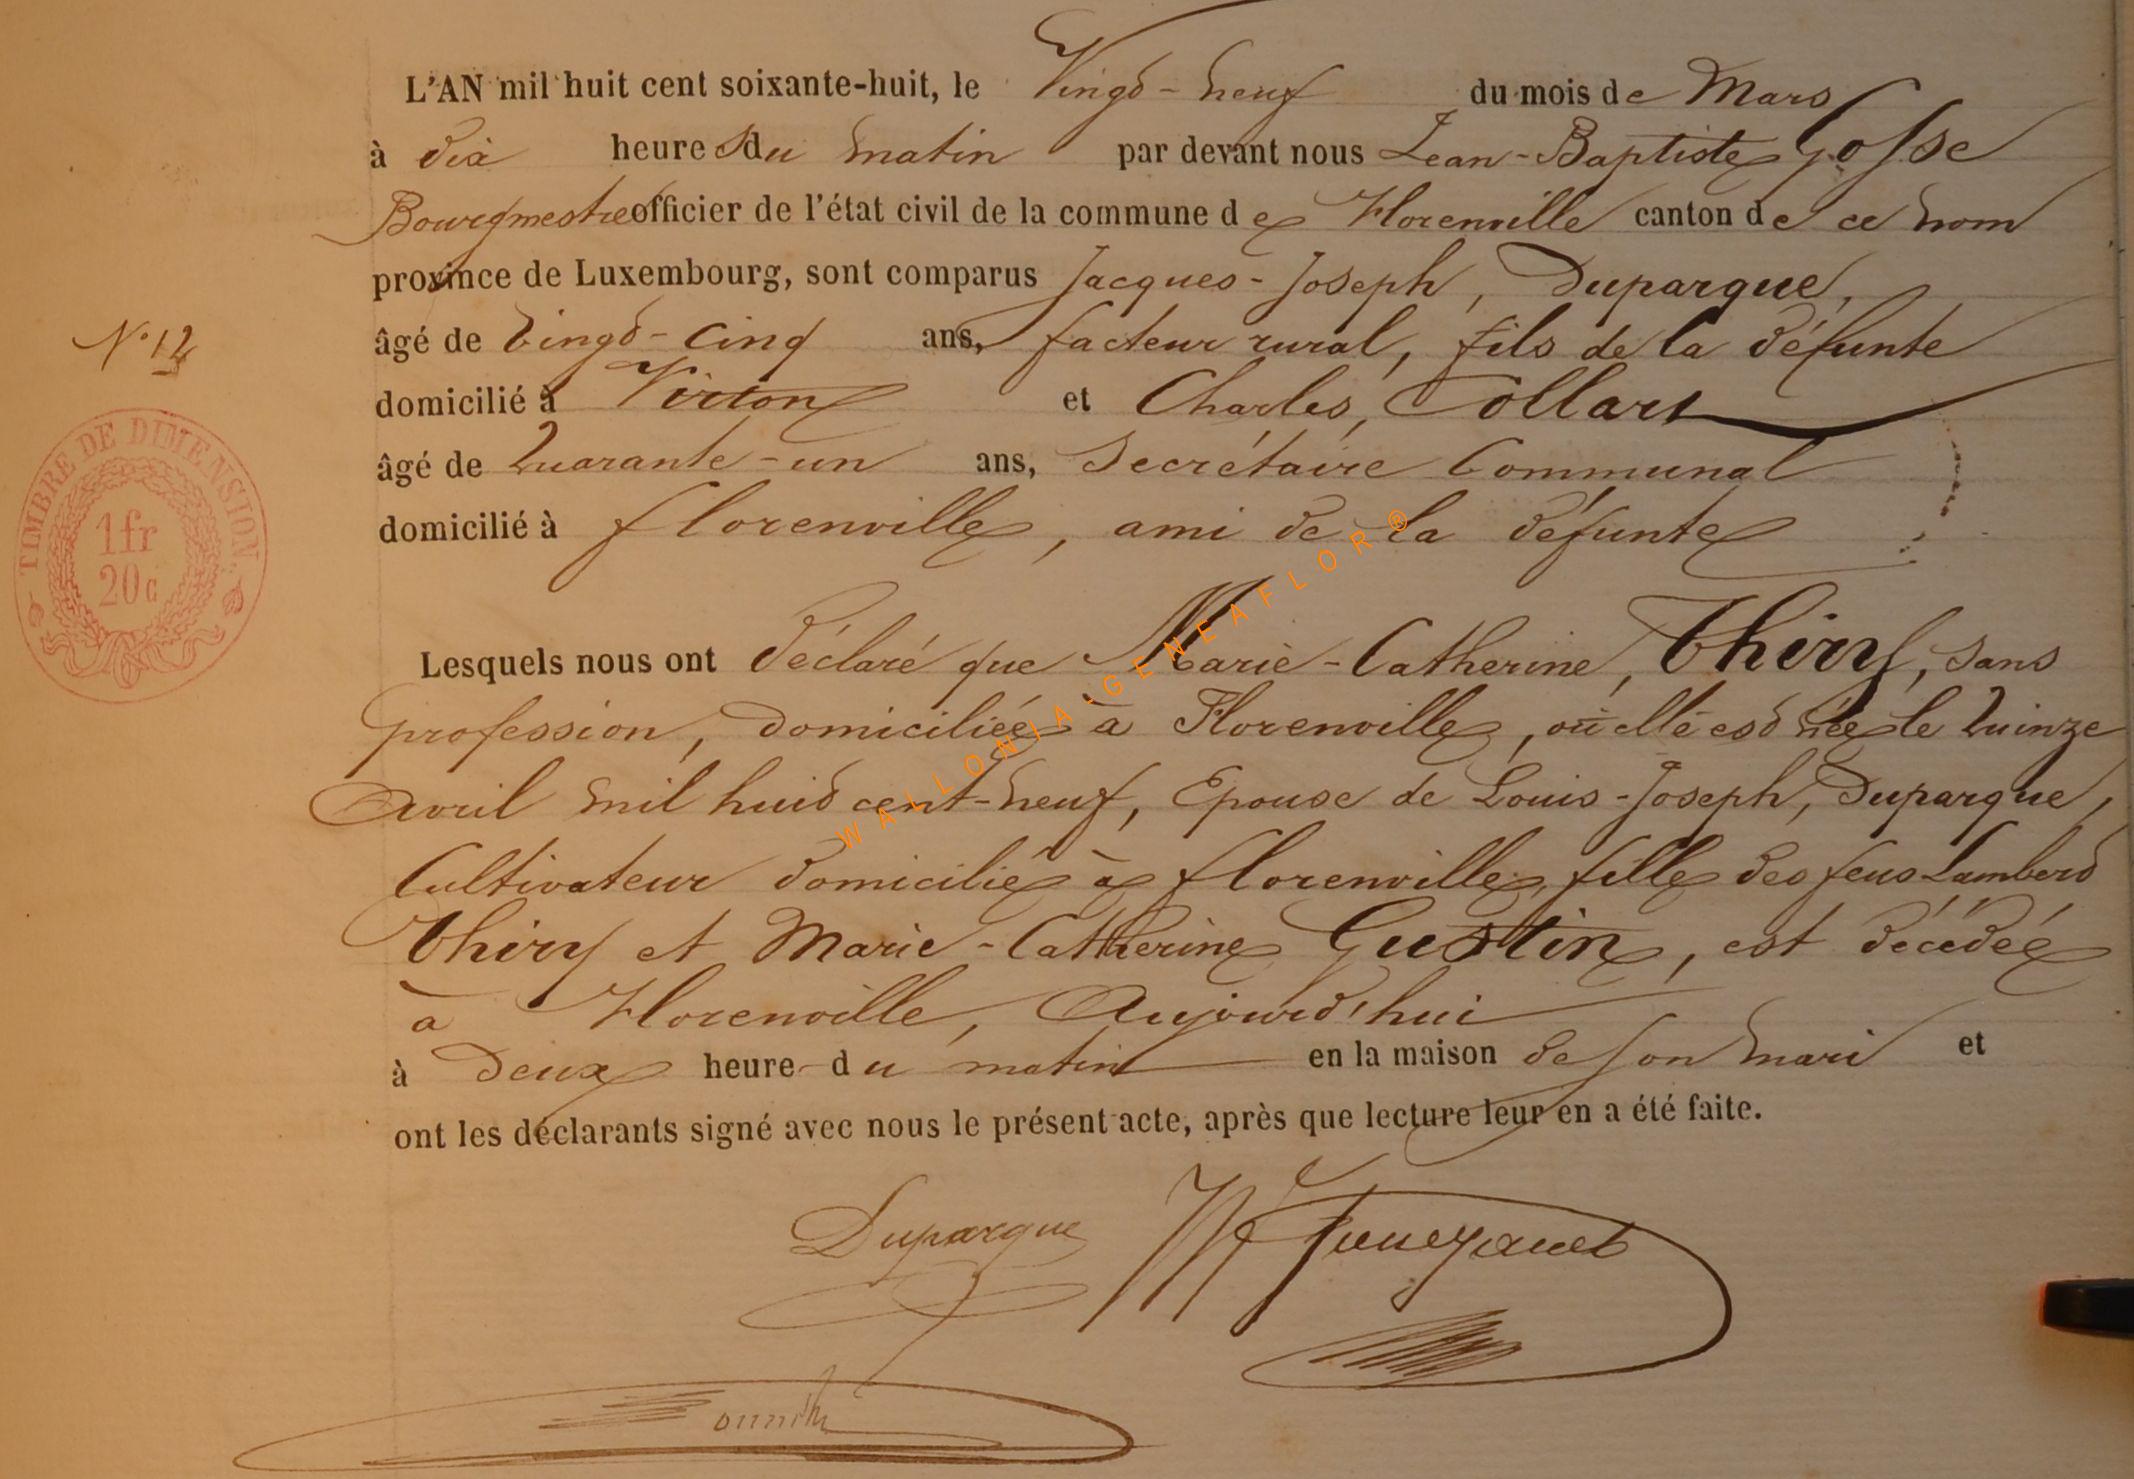 L'AN mil huit cent soixante-huit, le Vingt-neuf du mois de Mars
à dix heures du matin par devant nous Jean-Baptiste Gosse
Bourgmestre officier de l'état civil de la commune de Florenville canton de ce nom
province de Luxembourg, sont comparus Jacques-Joseph, Duparque,
âgé de Vingt-cinq ans, facteur rural, fils de la défunte
N° 12
domicilié à Virton et Charles, Collart
âgé de Quarante-un ans, Secrétaire Communal
domicilié à florenville, ami de la défunte
TIMBRE DE DIMENSION.
1 fr
20 c
Lesquels nous ont déclaré que Marie-Catherine, Thiry, sans
profession, domiciliée à Florenville, où elle est née le Quinze
Avril mil huit cent-neuf, Epouse de Louis-Joseph, Duparque,
Cultivateur domicilié à florenville, fille des feus Lambert
Thiry et Marie-Catherine Gustin, est décédée
à Florenville, Aujourd'hui
à Deux heure du matin en la maison de son mari et
ont les déclarants signé avec nous le présent acte, après que lecture leur en a été faite.
Duparque
WALLONIA-GENEAFLOR®